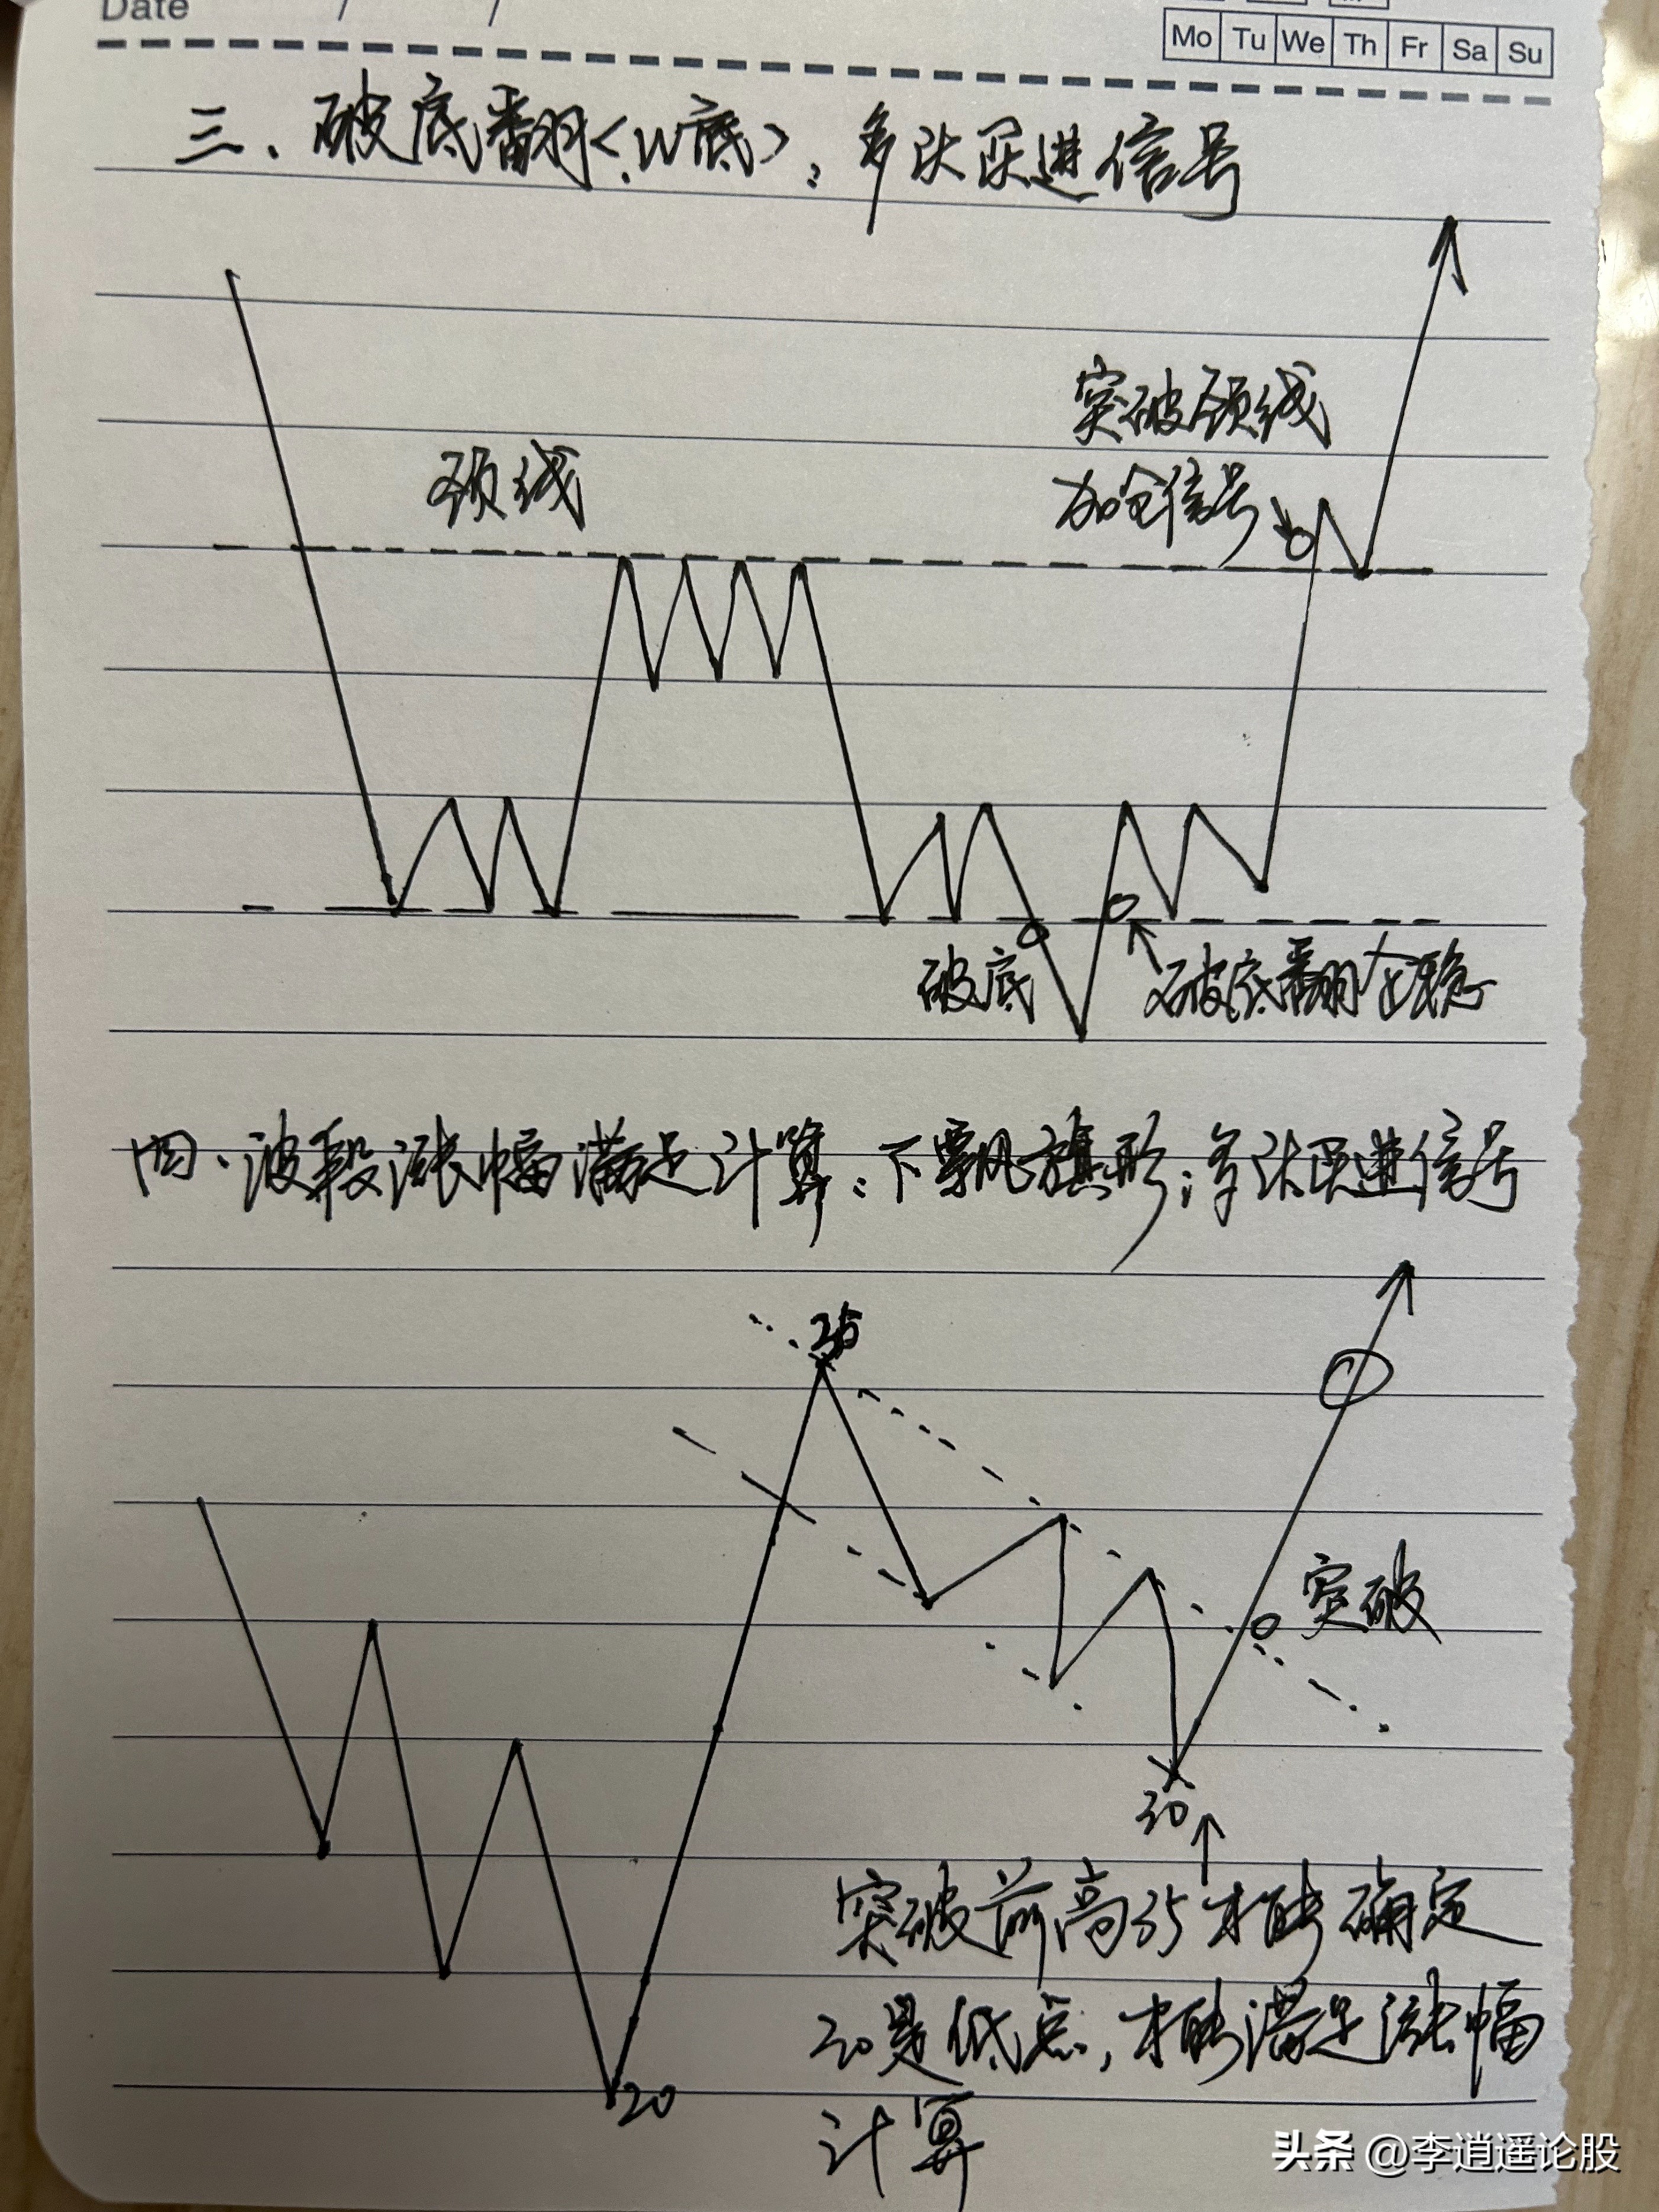 Date / /
Mo Tu We Th Fr Sa Su
三、破底翻(W底)：多头买进信号
突破颈线
颈线
加仓信号
破底
破底翻站稳
四、波段涨幅满足计算：下飘旗形；多头买进信号
35
突破
30
突破前高35才能确定
30是低点，才能满足涨幅
20
计算
头条 @李逍遥论股